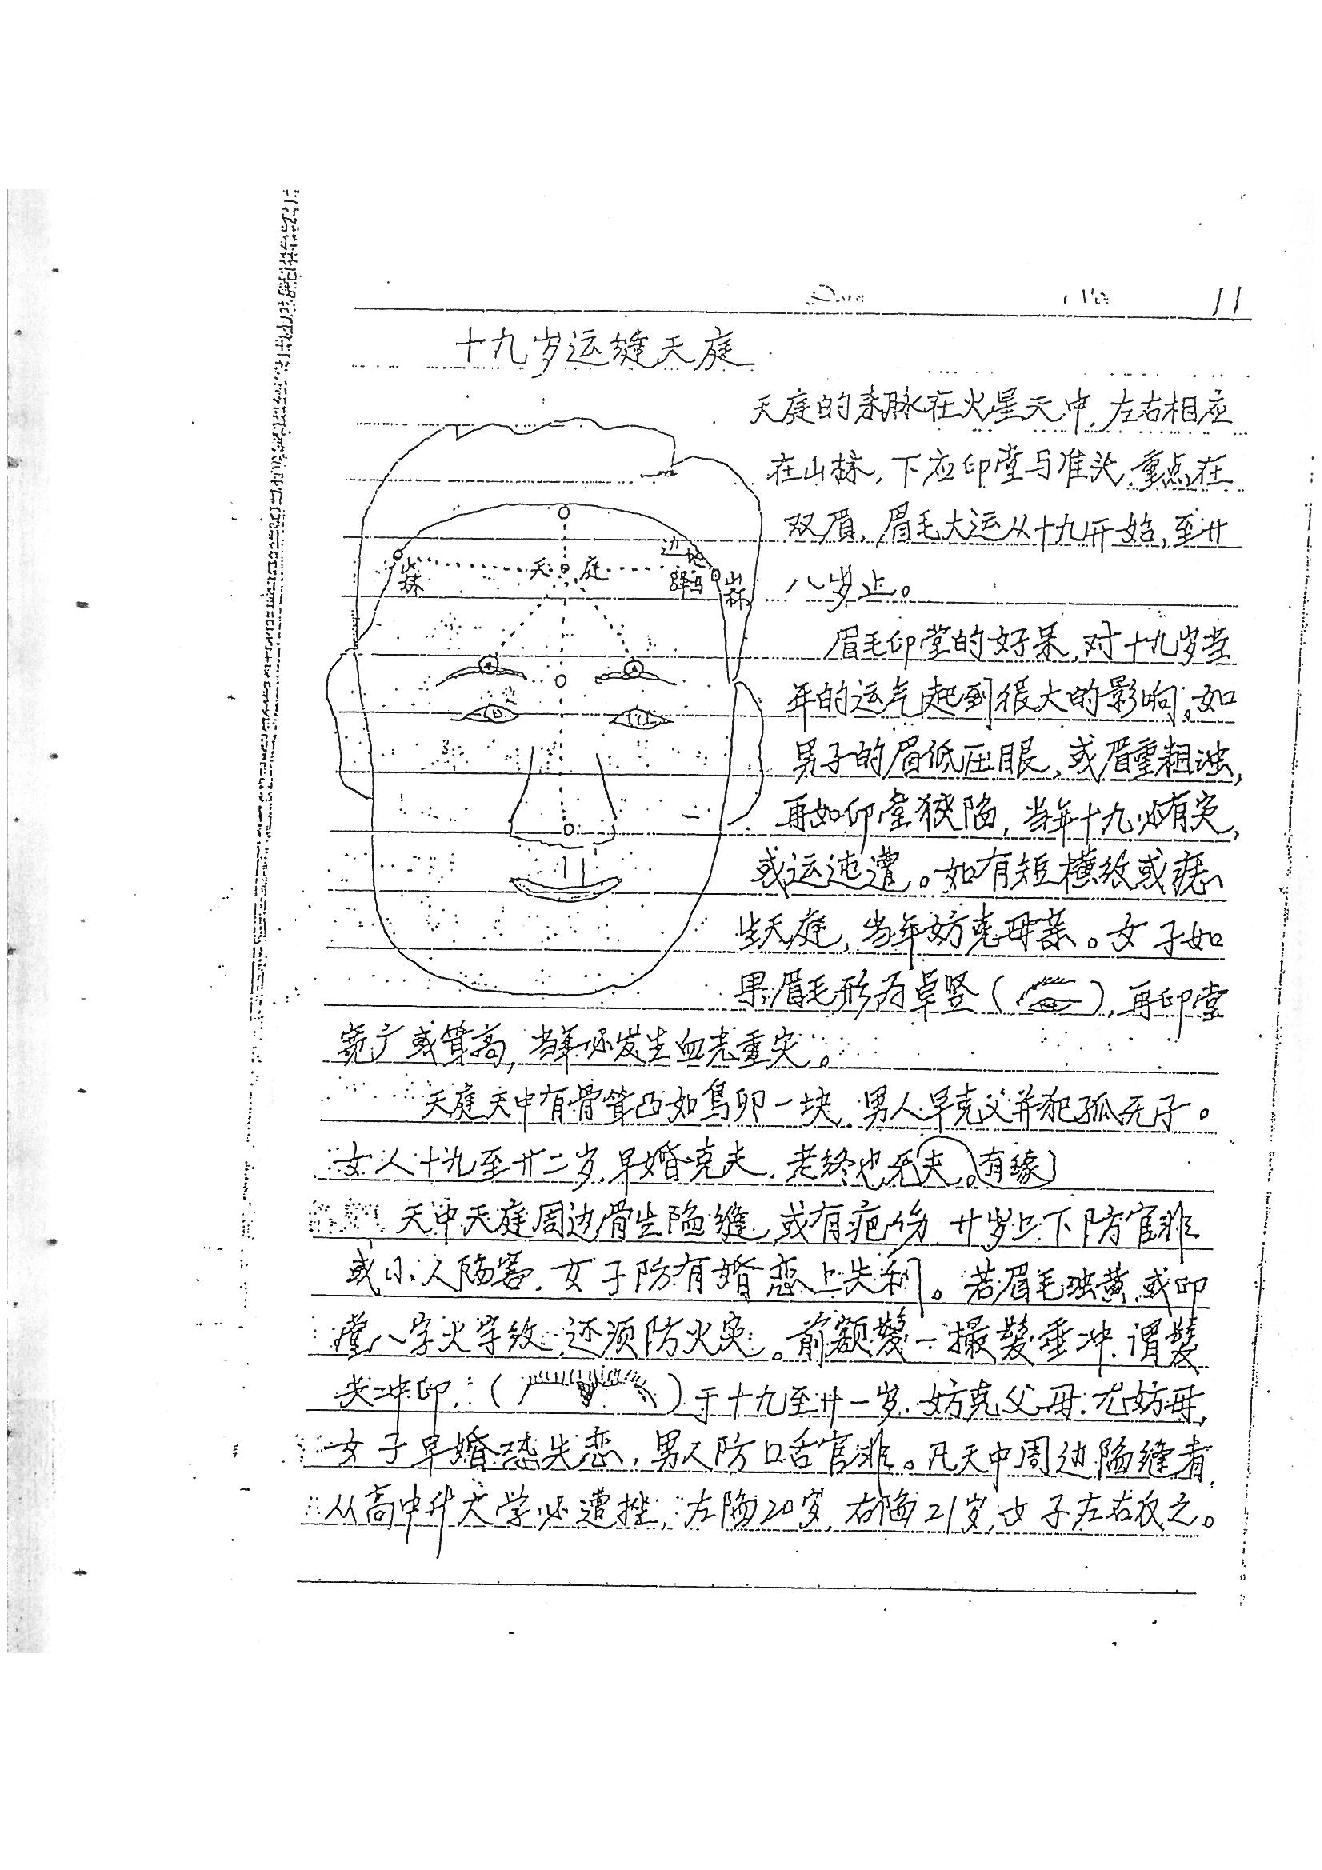 Date
No
11
十九岁运缝天庭
天庭的来脉在火星天中,左右相应
在山林,下应印堂与准头,重点在
双眉,眉毛大运从十九开始,至廿
八岁止。
山林 天庭 边地 驿马 山林
眉毛印堂的好呆,对十九岁当
年的运气起到很大的影响。如
男子的眉低压眼,或眉重粗浊,
再如印堂狭陷,当年十九必有灾,
或运迍遭。如有短横纹或痣
生天庭,当年妨克母亲。女子如
果眉毛形为卓竖( ),再印堂
宽广或耸高,当年必发生血光重灾。
天庭天中有骨耸凸如鸟卵一块,男人早克父并犯孤无子。
女人十九至廿二岁,早婚克夫,老终也死夫。有缘
天中天庭周边骨生陷缝,或有疤伤,廿岁上下防官非
或小人陷害,女子防有婚恋上失利。若眉毛浊黄,或印
堂八字火字纹,还须防火灾。前额鬓一撮鬓垂冲,谓鬓
尖冲印,( )于十九至廿一岁,妨克父母,尤妨母,
女子早婚恐失恋,男人防口舌官非。凡天中周边陷缝者,
从高中升大学必遭挫,左陷20岁,右陷21岁,女子左右反之。